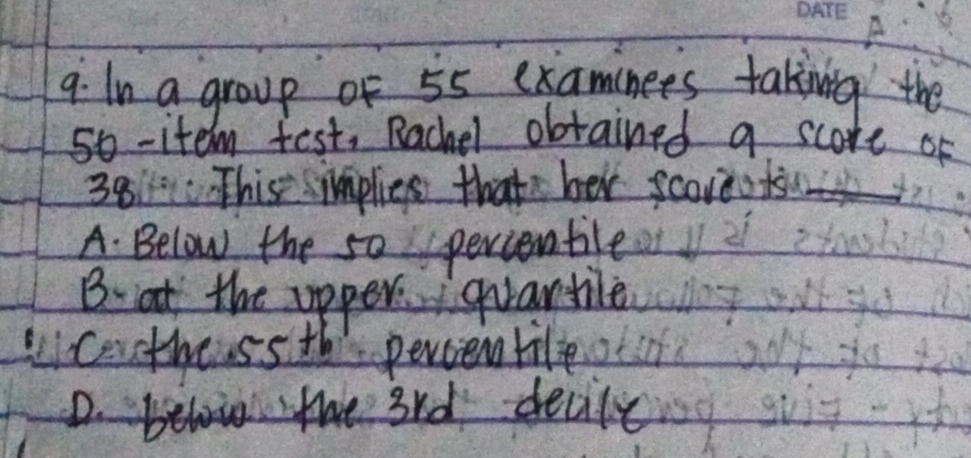 DATE
9. In a group OF 55 examinees taking the
50-item test, Rachel obtained a score OF
38. This implies that her score is
A. Below the 50 percentile
B. at the upper quartile
C. the 55th percentile
D. below the 3rd decile